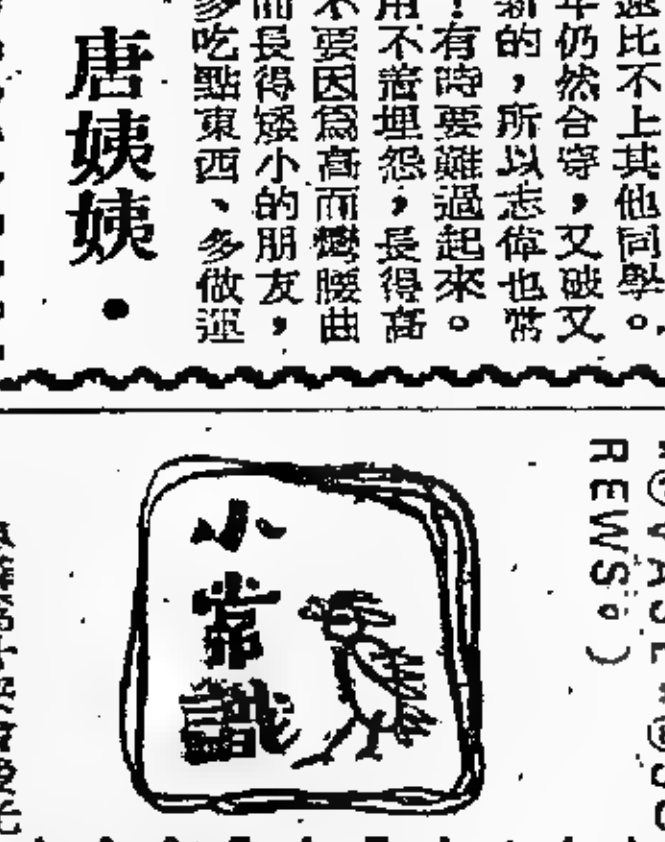 遠比不上其他同學。
年仍然合穿，又破又
新的，所以志偉也常
！有時要難過起來。
用不着埋怨，長得高
不要因為高而彎腰曲
而長得矮小的朋友，
多吃點東西、多做運
唐姨姨・
REWS。）
小常識